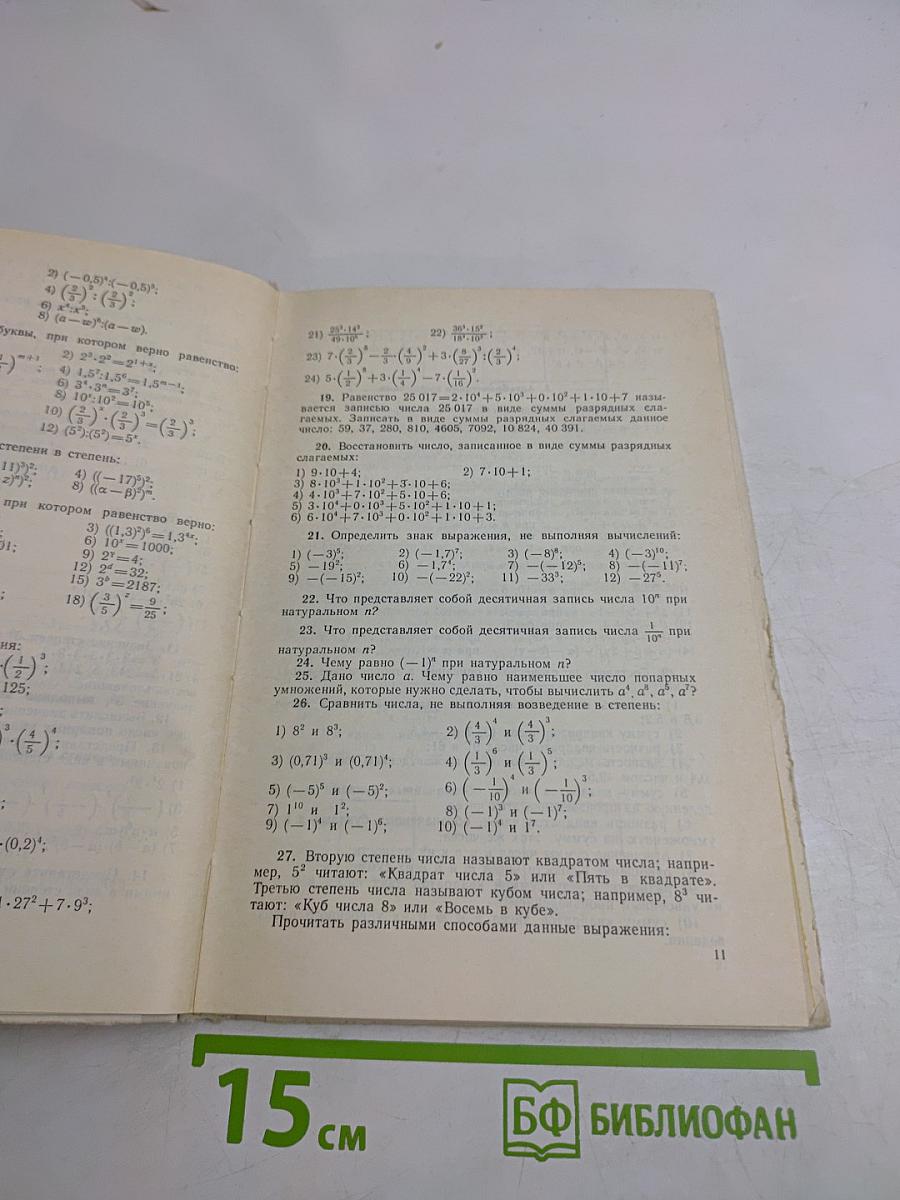 2) (−0,5)⁴:(−0,5)³;
4) (2/3)²:(2/3)²;
6) x⁴:x³;
8) (a−w)⁶:(a−w).
буквы, при котором верно равенство:
2) 2³·2²=2¹⁺ˣ;
4) 1,5⁷:1,5⁶=1,5ᵐ⁻¹;
6) 3⁴·3ⁿ=3⁷;
8) 10ˣ:10²=10⁵;
10) (2/3)ˣ·(2/3)³=(2/3)³;
12) (5²):(5²)=5ˣ.
степени в степень:
11)³)²; 4) ((−17)⁵)²;
z)ⁿ)²; 8) ((α−β)²)ᵐ.
при котором равенство верно:
3) ((1,3)²)⁶=1,3⁴ˣ;
01; 6) 10ˣ=1000;
9) 2ʸ=4;
12) 2ᵈ=32;
15) 3ᵇ=2187;
18) (3/5)ᶻ=9/25;
ния:
·(1/2)³;
125;
·(4/5)⁴;
·(0,2)⁴;
·27²+7·9³;
21) 25³·14²/49·10⁶; 22) 36³·15²/18⁴·10³;
23) 7·(2/3)⁵−2/3·(4/9)²+3·(8/27)³:(2/3)⁴;
24) 5·(1/2)⁸+3·(1/4)⁴−7·(1/16)².
19. Равенство 25 017=2·10⁴+5·10³+0·10²+1·10+7 назы-
вается записью числа 25 017 в виде суммы разрядных сла-
гаемых. Записать в виде суммы разрядных слагаемых данное
число: 59, 37, 280, 810, 4605, 7092, 10 824, 40 391.
20. Восстановить число, записанное в виде суммы разрядных
слагаемых:
1) 9·10+4; 2) 7·10+1;
3) 8·10³+1·10²+3·10+6;
4) 4·10³+7·10²+5·10+6;
5) 3·10⁴+0·10³+5·10²+1·10+1;
6) 6·10⁴+7·10³+0·10²+1·10+3.
21. Определить знак выражения, не выполняя вычислений:
1) (−3)⁵; 2) (−1,7)⁷; 3) (−8)⁸; 4) (−3)¹⁰;
5) −19²; 6) −1,7⁴; 7) −(−12)⁵; 8) −(−11)⁷;
9) −(−15)²; 10) −(−22)²; 11) −33³; 12) −27⁵.
22. Что представляет собой десятичная запись числа 10ⁿ при
натуральном n?
23. Что представляет собой десятичная запись числа 1/10ⁿ при
натуральном n?
24. Чему равно (−1)ⁿ при натуральном n?
25. Дано число a. Чему равно наименьшее число попарных
умножений, которые нужно сделать, чтобы вычислить a⁴, a⁸, a⁵, a⁷?
26. Сравнить числа, не выполняя возведение в степень:
1) 8² и 8³; 2) (4/3)⁴ и (4/3)³;
3) (0,71)³ и (0,71)⁴; 4) (1/3)⁶ и (1/3)⁵;
5) (−5)⁵ и (−5)²; 6) (−1/10)⁴ и (−1/10)³;
7) 1¹⁰ и 1²; 8) (−1)³ и (−1)⁷;
9) (−1)⁴ и (−1)⁶; 10) (−1)⁴ и 1⁷.
27. Вторую степень числа называют квадратом числа; напри-
мер, 5² читают: «Квадрат числа 5» или «Пять в квадрате».
Третью степень числа называют кубом числа; например, 8³ чи-
тают: «Куб числа 8» или «Восемь в кубе».
Прочитать различными способами данные выражения:
11
15 см
БФ БИБЛИОФАН